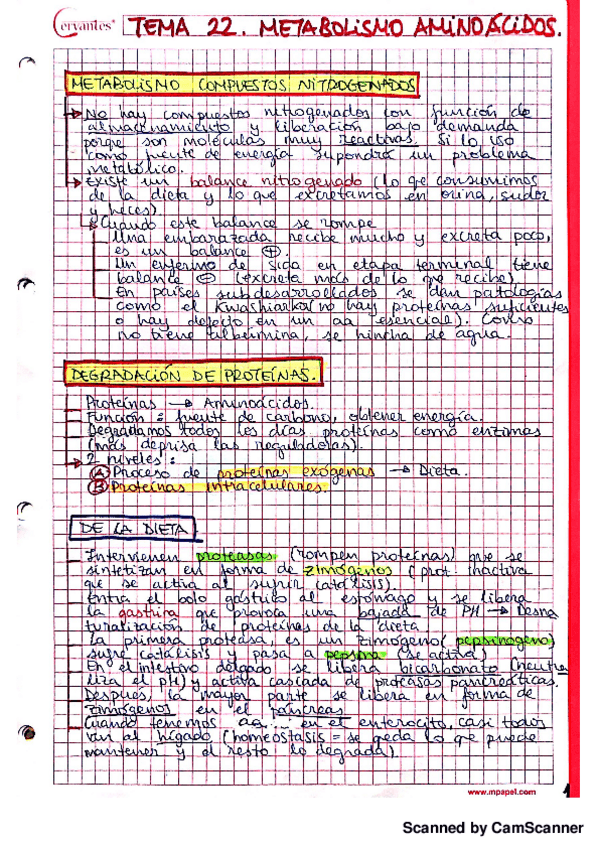 Cervantes®
TEMA 22. METABOLISMO AMINOÁCIDOS.
METABOLISMO COMPUESTOS NITROGENADOS
→ No hay compuestos nitrogenados con función de
almacenamiento y liberación bajo demanda
porque son moléculas muy reactivas. Si lo uso
como fuente de energía supondrá un problema
metabólico.
→ Existe un balance nitrogenado (lo que consumimos
de la dieta y lo que excretamos en orina, sudor
y heces)
Cuando este balance se rompe
Una embarazada recibe mucho y excreta poco,
es un balance ⊕.
Un enfermo de sida en etapa terminal tiene
balance ⊖ (excreta más de lo que recibe)
En países subdesarrollados se dan patologías
como el Kwashiarkor (no hay proteínas suficientes
o hay defecto en un aa esencial). Como
no tiene albúmina, se hincha de agua.
DEGRADACIÓN DE PROTEÍNAS.
Proteínas → Aminoácidos.
Función: fuente de carbono, obtener energía.
Degradamos todos los días proteínas como enzimas
(más deprisa las reguladoras).
→ 2 niveles:
Ⓐ Proceso de proteínas exógenas → Dieta.
Ⓑ Proteínas intracelulares.
DE LA DIETA
Intervienen proteasas (rompen proteínas) que se
sintetizan en forma de zimógenos (prot. inactiva
que se activa al sufrir catálisis).
Entra el bolo gástrico al estómago y se libera
la gastrina que provoca una bajada de PH → Desna
turalización de proteínas de la dieta
la primera proteasa, es un zimógeno (pepsinogeno)
sufre catálisis y pasa a pepsina (se activa)
En el intestino delgado se libera bicarbonato (neutra
liza el pH) y activa cascada de proteasas pancreáticas.
Después, la mayor parte se libera en forma de
zimógenos en el páncreas
Cuando tenemos aa... en el enterocito, casi todos
van al hígado (homeostasis = se queda lo que puede
mantener y el resto lo degrada).
www.mpapel.com
1
Scanned by CamScanner